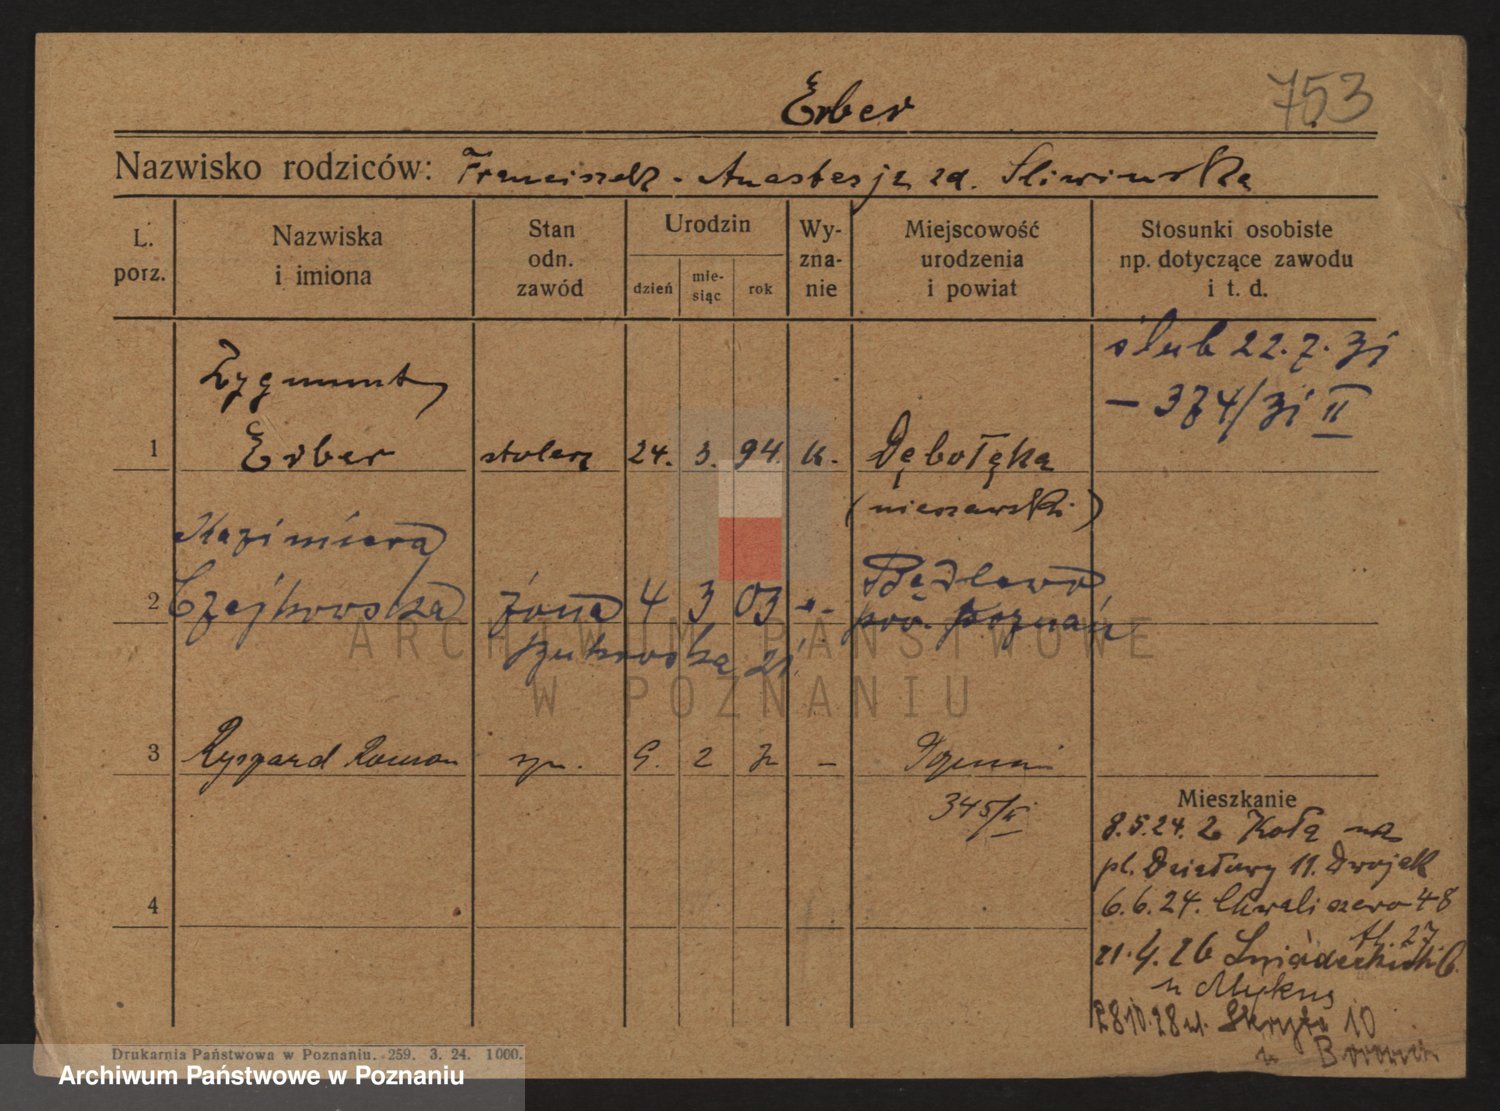 Erber
753
Nazwisko rodziców: Franciszek - Anastazja zd. Śliwińska
L. porz.
Nazwiska i imiona
Stan odn. zawód
Urodzin
dzień
mie-siąc
rok
Wy-zna-nie
Miejscowość urodzenia i powiat
Stosunki osobiste np. dotyczące zawodu i t. d.
ślub 22.7.31
- 374/31 II
Zygmunt
1 Erber stolarz 24. 3. 94. k. Dębołęka
(nieszawski)
Kazimiera
2 Czajkowska żona 4 3 03 -"- Będlewo
pow. Poznań
21
3 Ryszard Roman syn. 9. 2 32 - Poznań
345/II
Mieszkanie
8.5.24. z Koła na
pl. Działowy 11. Dwojak
4
6.6.24. Chwaliszewo 48
tł. 27.
21.4.26 Śniadeckich 6.
u
28.10.28 ul. Skryta 10
u
ARCHIWUM PAŃSTWOWE
W POZNANIU
Drukarnia Państwowa w Poznaniu. 259. 3. 24. 1000.
Archiwum Państwowe w Poznaniu